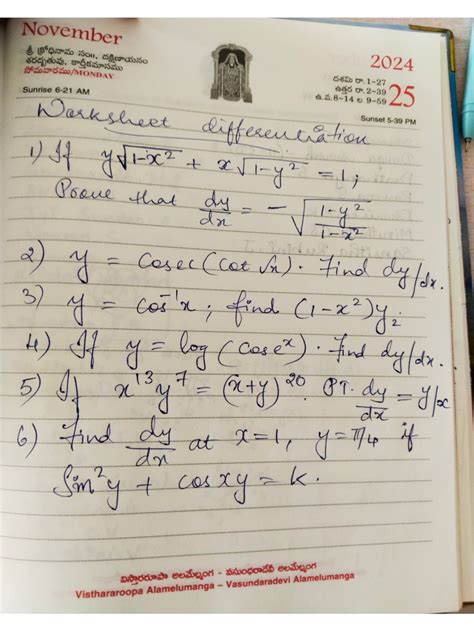 November
2024
శ్రీ క్రోధినామ సం॥, దక్షిణాయనం
శరదృతువు, కార్తీకమాసము
సోమవారము/MONDAY
దశమి రా.1-27
ఉత్తర రా.2-39
ఉ.వ.8-14 ల 9-59
25
Sunrise 6-21 AM
Sunset 5-39 PM
Worksheet differentiation
1) If y√1-x² + x√1-y² = 1;
Prove that dy/dx = -√(1-y²/1-x²)
2) y = cosec(cot√x). Find dy/dx.
3) y = cos⁻¹x; find (1-x²)y₂
4) If y = log(cos eˣ). Find dy/dx.
5) If x¹³y⁷ = (x+y)²⁰. PT. dy/dx = y/x
6) Find dy/dx at x=1, y=π/4 if
Sin²y + cos xy = k.
విస్తారరూపా అలమేల్మంగ - వసుంధరాదేవి అలమేలుమంగా
Visthararoopa Alamelumanga – Vasundaradevi Alamelumanga